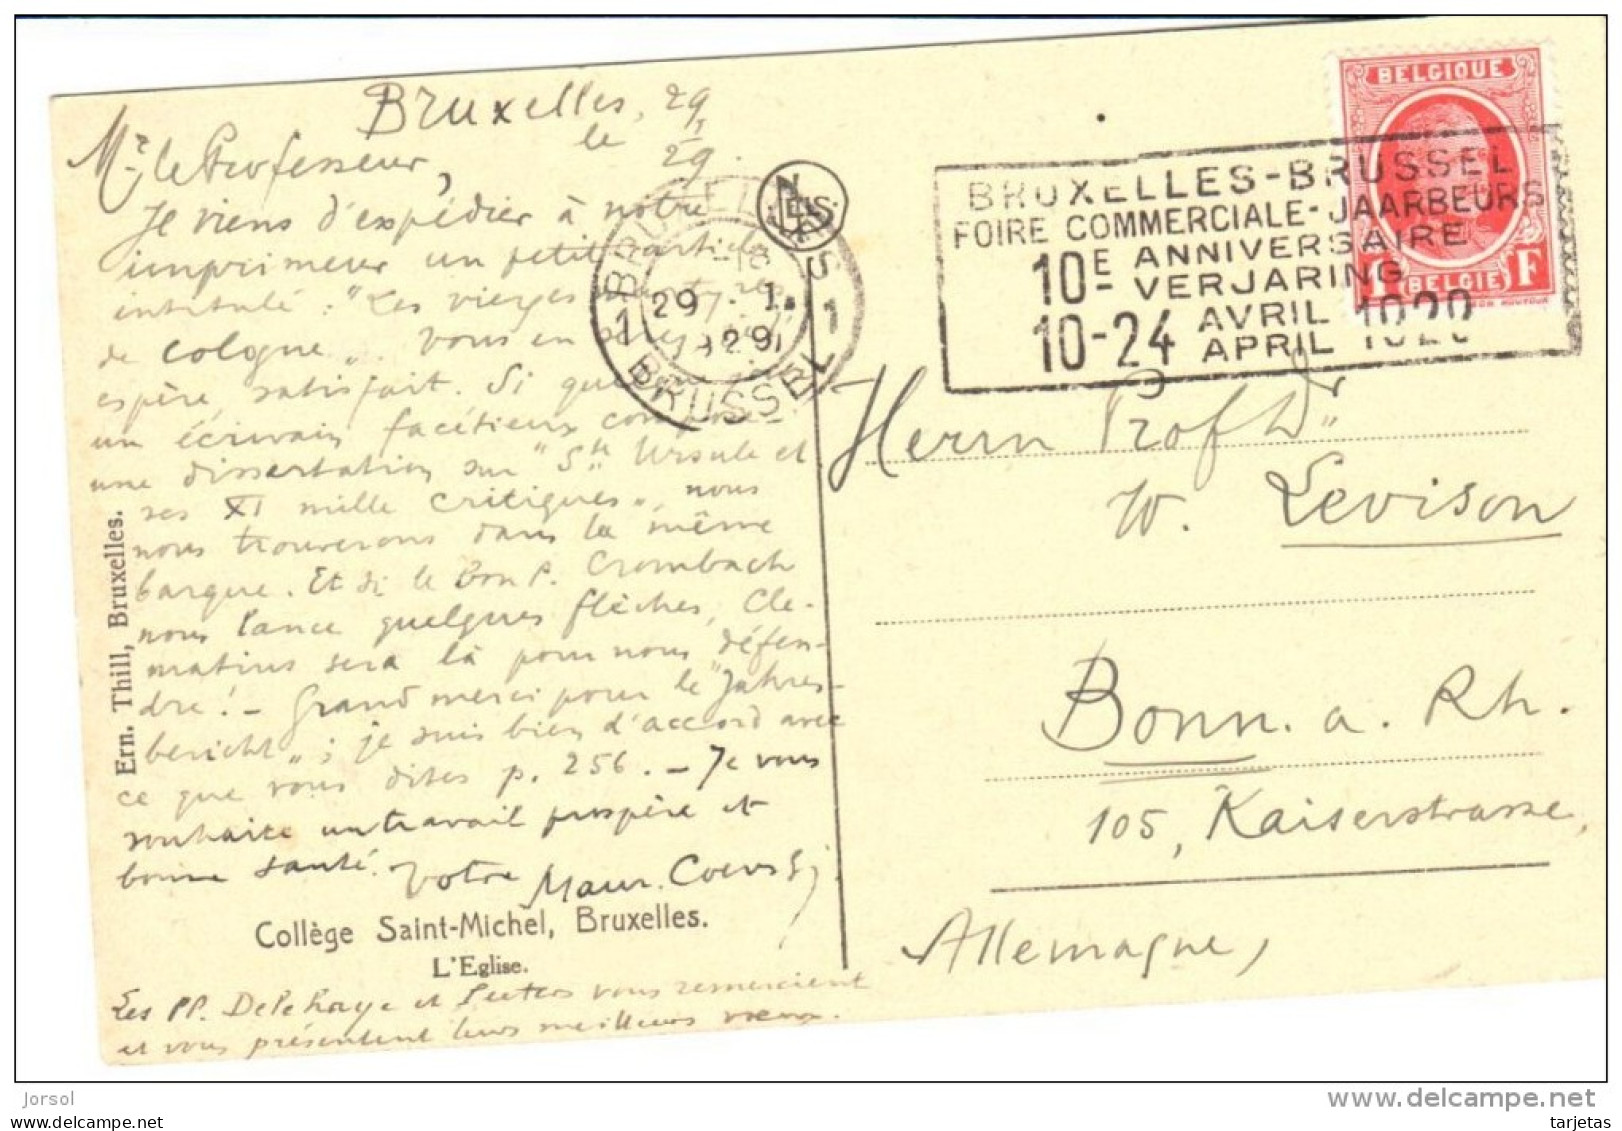 Bruxelles, 29
le I
29.
Mr le Professeur,
Je viens d'expédier à notre
imprimeur un petit article
intitulé: "Les vierges martyres
de Cologne". Vous en serez, j'
espère, satisfait. Si quelque jour
un écrivain facétieux compose
une dissertation sur "Ste Ursule et
ses XI mille critiques", nous
nous trouverons dans la même
barque. Et si le bon P. Crombach
nous lance quelques flèches, Cle-
matius sera là pour nous défen-
dre! - Grand merci pour le "Jahres-
bericht"; je suis bien d'accord avec
ce que vous dites p. 256. - Je vous
souhaite un travail prospère et
bonne santé. Votre Maur. Coens Sj.
Collège Saint-Michel, Bruxelles.
L'Eglise.
Les PP. Delehaye et Peeters vous remercient
et vous présentent leurs meilleurs vœux.
Ern. Thill, Bruxelles.
NELS
BRUXELLES
1 1
29 · I
29
BRUSSEL
BRUXELLES-BRUSSEL
FOIRE COMMERCIALE-JAARBEURS
10E ANNIVERSAIRE
VERJARING
10-24 AVRIL 1929
APRIL
BELGIQUE
1 F
BELGIE
Herrn Prof Dr
W. Levison
Bonn. a. Rh.
105, Kaiserstrasse,
Allemagne,
Jorsol
www.delcampe.net
tarjetas